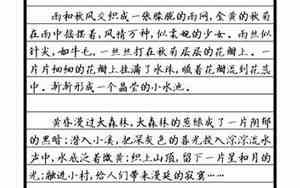 雨和秋风交织成一张朦胧的雨网,金黄的秋菊
在雨中摇摆着,风情万种,似柔媚的少女。雨丝似
针尖,如牛毛,一丝丝打在秋菊层层的花瓣上。一
片片细细的花瓣上挂满了水珠,顺着花瓣流到花蕊
中。渐渐形成一个晶莹的小水池。
黄昏漫过大森林,大森林的葱绿成了一片阴郁
的黑暗;潜入小溪,把深灰色的暮光投入淙淙流水
声中,水底泛着微黄;织上山顶,留下一片星和月的
光;融进小村,给人们带来漫延的寂寞……